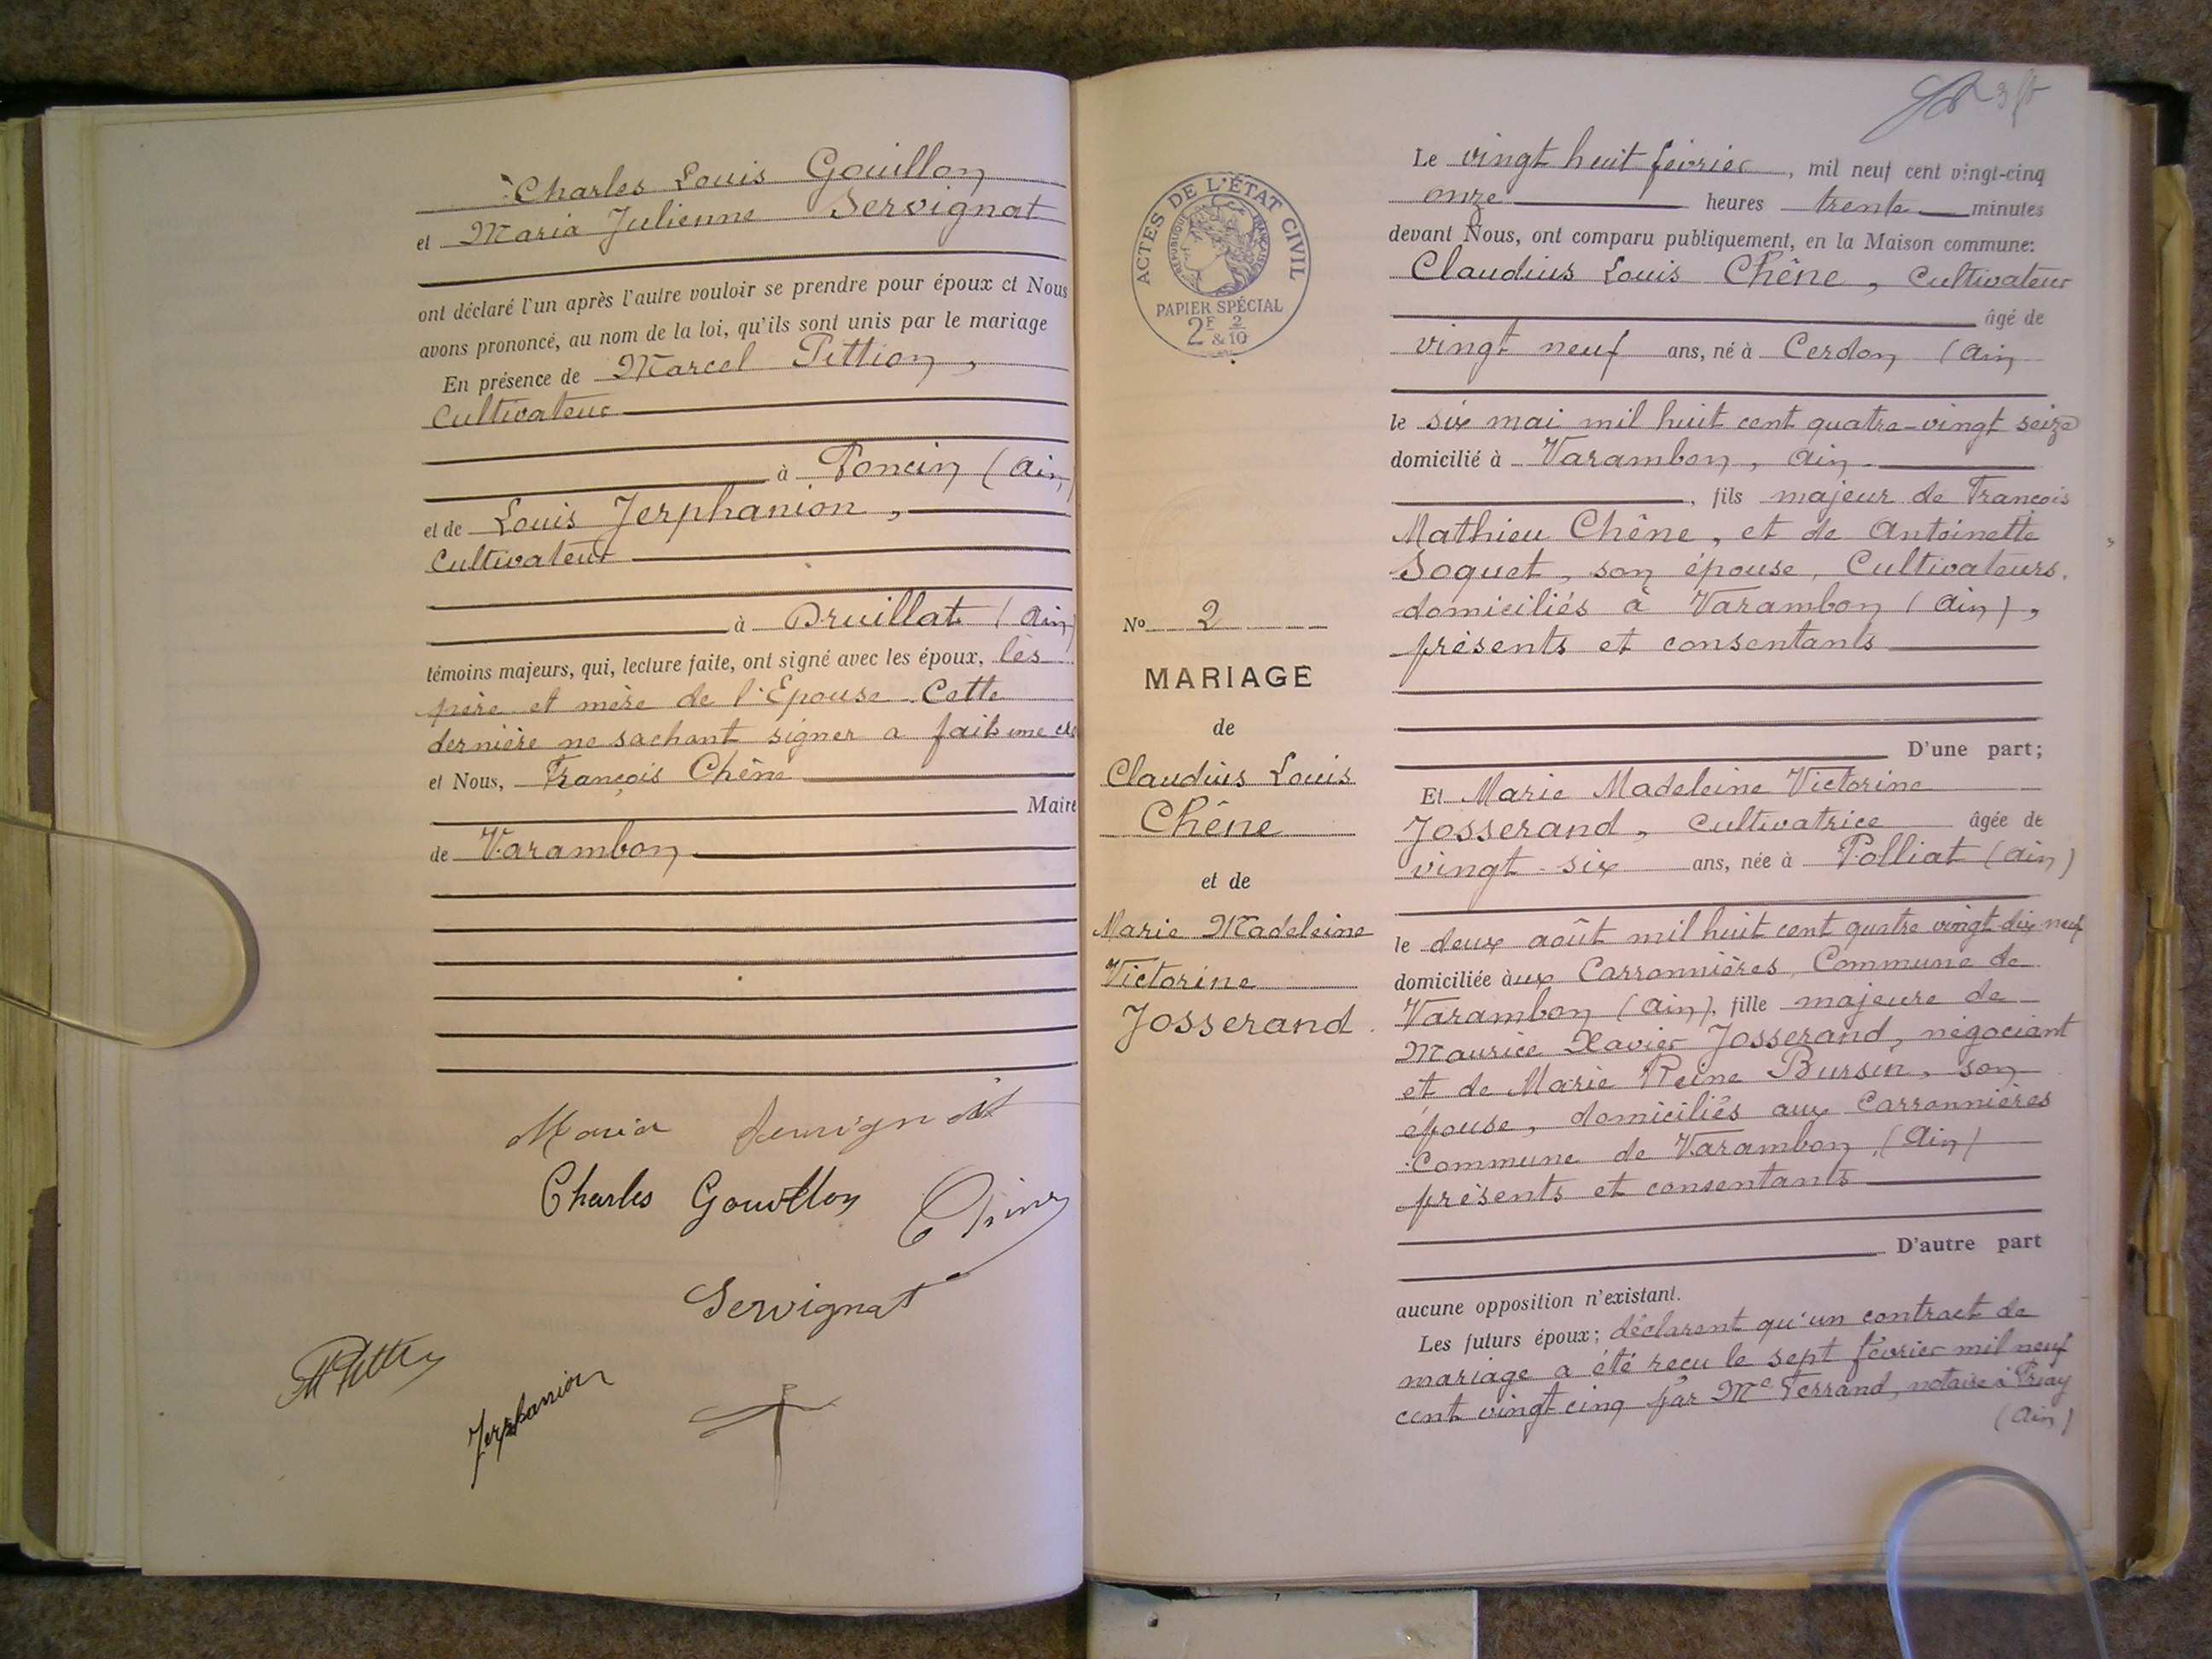 Charles Louis Gouillon
et Maria Julienne Servignat
ont déclaré l'un après l'autre vouloir se prendre pour époux et Nous
avons prononcé, au nom de la loi, qu'ils sont unis par le mariage
En présence de Marcel Pittion,
Cultivateur
à Poncin (Ain)
et de Louis Jerphanion,
Cultivateur
à Druillat (Ain)
témoins majeurs, qui, lecture faite, ont signé avec les époux, les
père et mère de l'Epouse. Cette
dernière ne sachant signer a fait une
et Nous, François Chêne
Maire
de Varambon
Maria Servignat
Charles Gouillon
Chêne
Servignat
Jerphanion
ACTES DE L'ÉTAT CIVIL
RÉPUBLIQUE FRANÇAISE
PAPIER SPÉCIAL
2F & 2/10
No 2
MARIAGE
de
Claudius Louis
Chêne
et de
Marie Madeleine
Victorine
Josserand
Le vingt huit février, mil neuf cent vingt-cinq
onze heures trente minutes
devant Nous, ont comparu publiquement, en la Maison commune:
Claudius Louis Chêne, Cultivateur
âgé de
vingt neuf ans, né à Cerdon (Ain
le six mai mil huit cent quatre-vingt seize
domicilié à Varambon, Ain.
, fils majeur de François
Mathieu Chêne, et de Antoinette
Soquet, son épouse, Cultivateurs,
domiciliés à Varambon (Ain),
présents et consentants
D'une part;
Et Marie Madeleine Victorine
Josserand, cultivatrice âgée de
vingt-six ans, née à Polliat (Ain)
le deux août mil huit cent quatre vingt dix-neuf
domiciliée aux Carronnières, Commune de
Varambon (Ain), fille majeure de
Maurice Xavier Josserand, négociant
et de Marie Reine Bursin, son
épouse, domiciliés aux Carronnières
Commune de Varambon, (Ain)
présents et consentants
D'autre part
aucune opposition n'existant.
Les futurs époux; déclarent qu'un contract de
mariage a été reçu le sept février mil neuf
cent vingt cinq par Me Ferrand, notaire à Priay
(Ain)